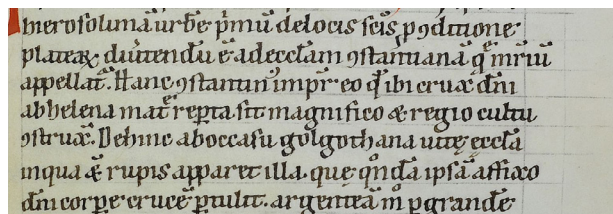 hierosolimā urbē p̄mū de locis scīs ꝓ ꝯditione
plateaꝝ diūtendū ē ad eccl̄am ꝯstantinianā q̄ mr̄iū
appellat᷑. Hanc ꝯstantin᷒ imp̄r eo qd̄ ibi crux dn̄i
ab helena mat̄e rep̄ta sit magnifico & regio cultu
ꝯstrux̄. Dehinc ab occasu golgothana uidet᷑ eccl̄a
in qua & rupis apparet illa. que qn̄dā ipsā affixo
dn̄i corpe crucē ꝑtulit. argenteā m̊ ꝑgrandē